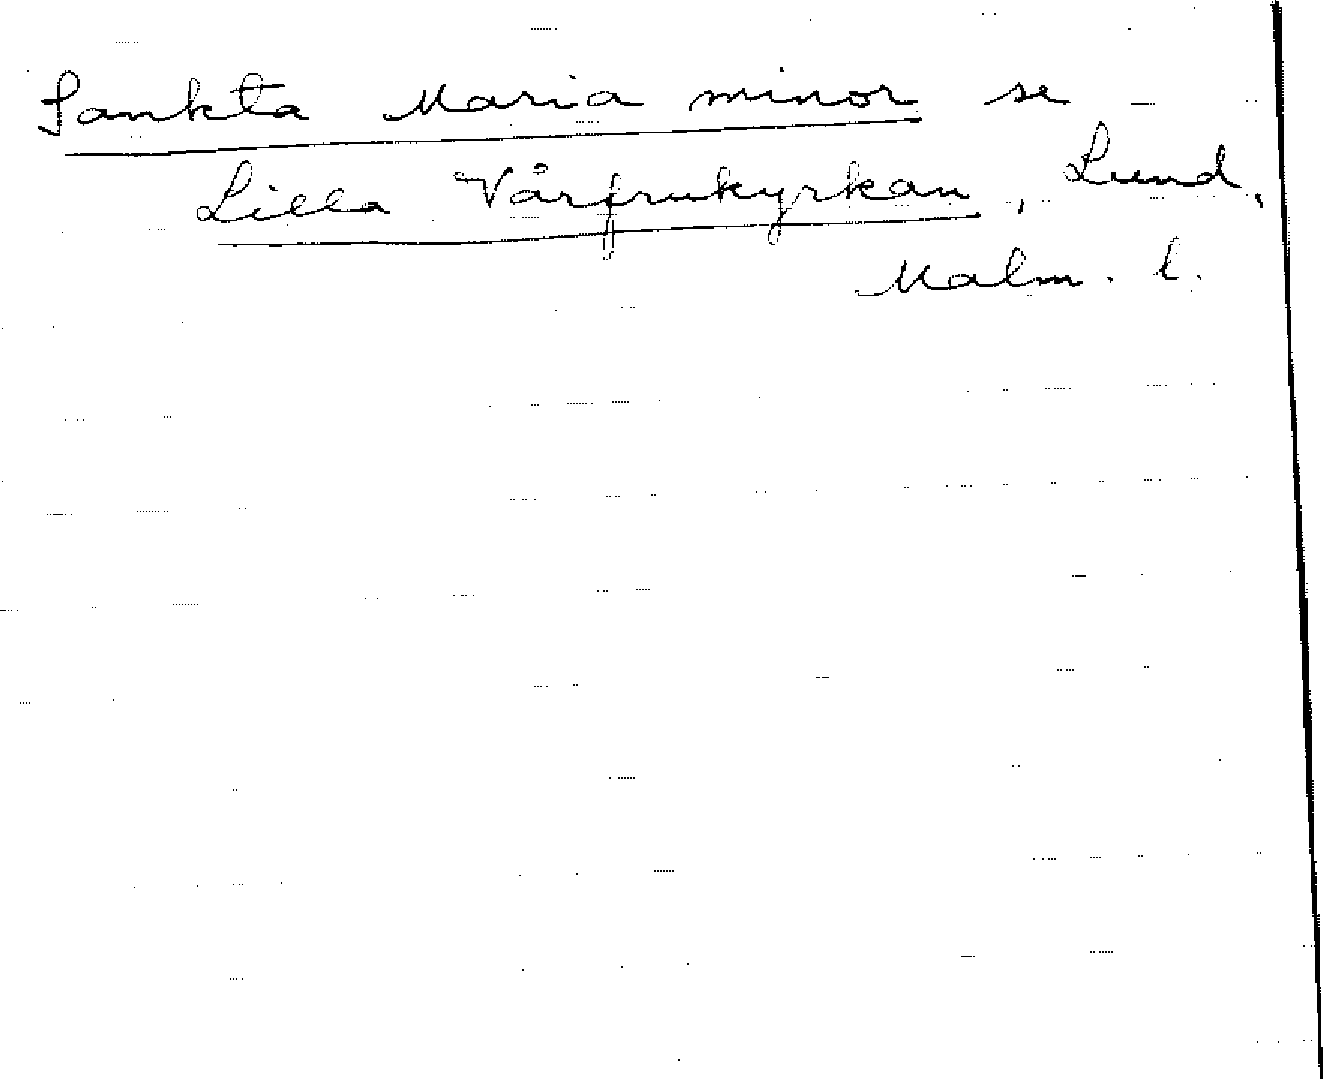 Sankta Maria minor se
Lilla Vårfrukyrkan, Lund,
Malm. l.